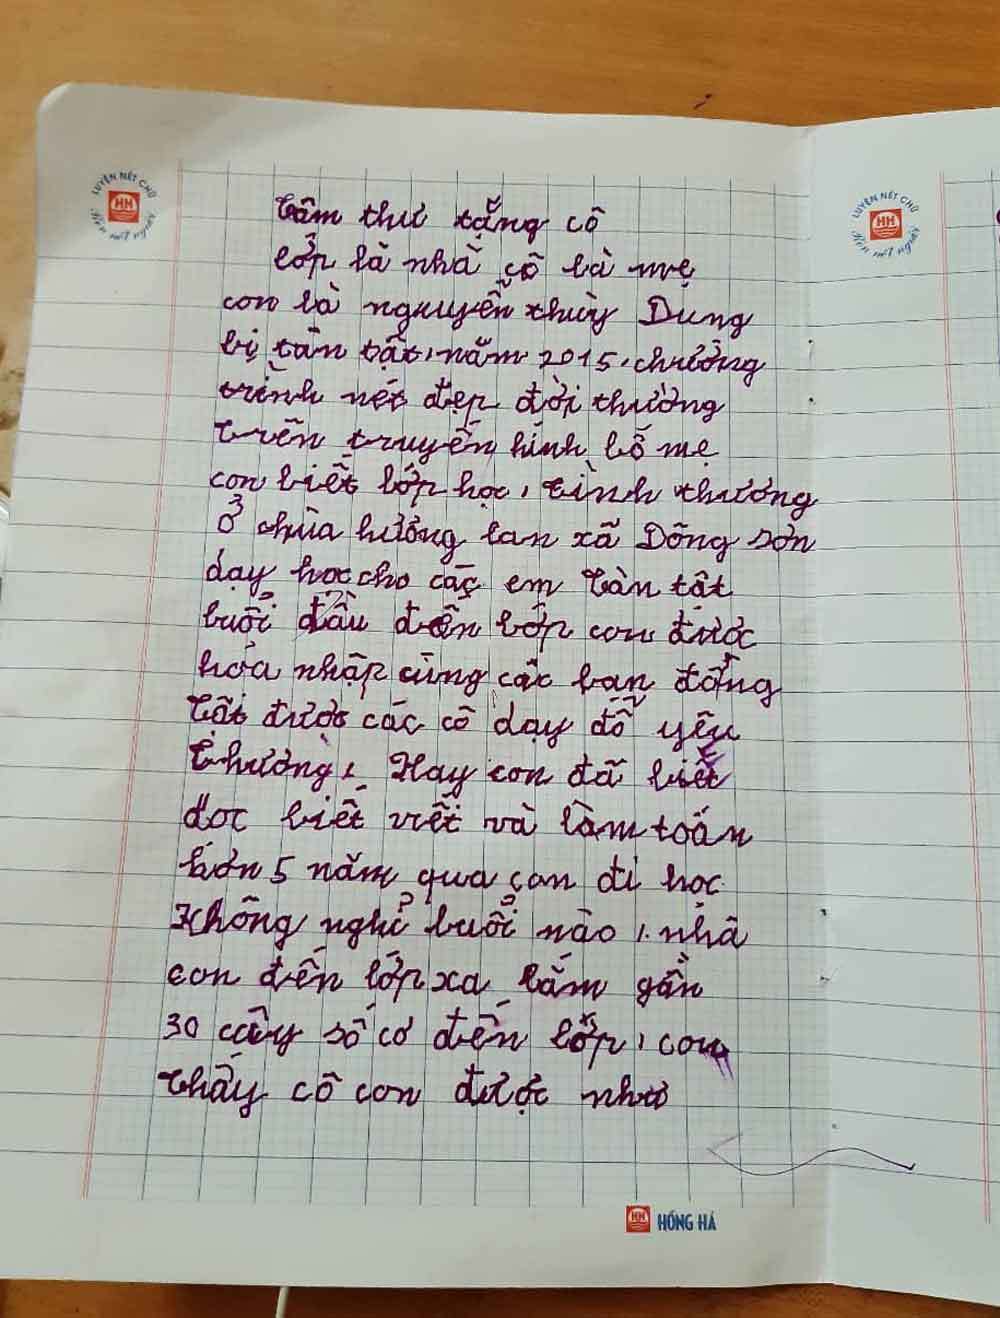 LUYỆN NÉT CHỮ
HH
Rèn nết người
LUYỆN NÉT CHỮ
HH
Rèn nết người
Tâm thư tặng cô
lớp là nhà cô là mẹ
con là nguyễn thùy Dung
bị tàn tật, năm 2015. chương
trình nét đẹp đời thường
trên truyền hình bố mẹ
con biết lớp học, tình thương
ở chùa hương lan xã Đông sơn
dạy học cho các em tàn tật
buổi đầu đến lớp con được
hòa nhập cùng các bạn đồng
tật được các cô dạy dỗ yêu
thương, Nay con đã biết
đọc biết viết và làm toán
hơn 5 năm qua con đi học
không nghỉ buổi nào, nhà
con đến lớp xa lắm gần
30 cây số cơ đến lớp, con
thấy cô con được như
HH HỒNG HÀ